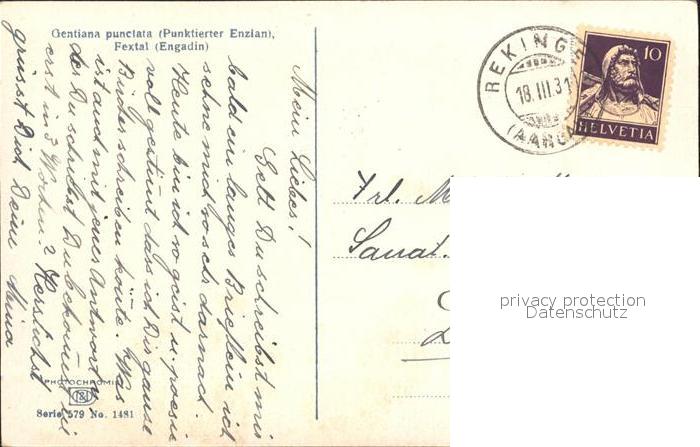 Gentiana punctata (Punktierter Enzian),
Fextal (Engadin)
Mein Liebes!
Gelt Du schreibst mir
bald ein langes Brieflein ich
sehne mich so sehr darnach.
Heute bin ich so geist u. poesie
voll gestimt dass ich Dir ganze
Bücher schreiben könte. Was
ist auch mit jenes Antwort
der Du schultest Du bekomst sie
erst in 3 Wochen. ? Herzlichst
grüsst Dich Deine
PHOTOCHROMIE
Serie 579 No. 1481
REKINGEN
18.III.31
(AARGAU)
10
HELVETIA
Frl. M
Sanat.
privacy protection
Datenschutz